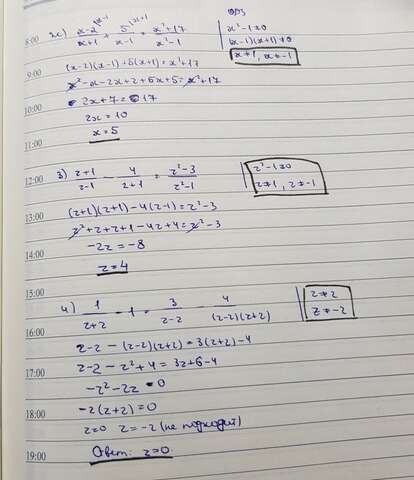 ОДЗ
8:00 ж) (x-2)/(x+1) + 5/(x-1) = (x²+17)/(x²-1) | x²-1≠0
(x-1)(x+1)≠0
x≠1, x≠-1
9:00 (x-2)(x-1)+5(x+1)=x²+17
x²-x-2x+2+5x+5=x²+17
10:00 2x+7=17
2x=10
x=5
11:00
12:00 з) (z+1)/(z-1) - 4/(z+1) = (z²-3)/(z²-1) | z²-1≠0
z≠1, z≠-1
13:00 (z+1)(z+1)-4(z-1)=z²-3
z²+z+z+1-4z+4=z²-3
14:00 -2z=-8
z=4
15:00
и) 1/(z+2) - 1 = 3/(z-2) - 4/((z-2)(z+2)) | z≠2
z≠-2
16:00
z-2-(z-2)(z+2)=3(z+2)-4
17:00 z-2-z²+4=3z+6-4
-z²-2z=0
18:00 -z(z+2)=0
z=0 z=-2 (не подходит)
19:00 Ответ: z=0.